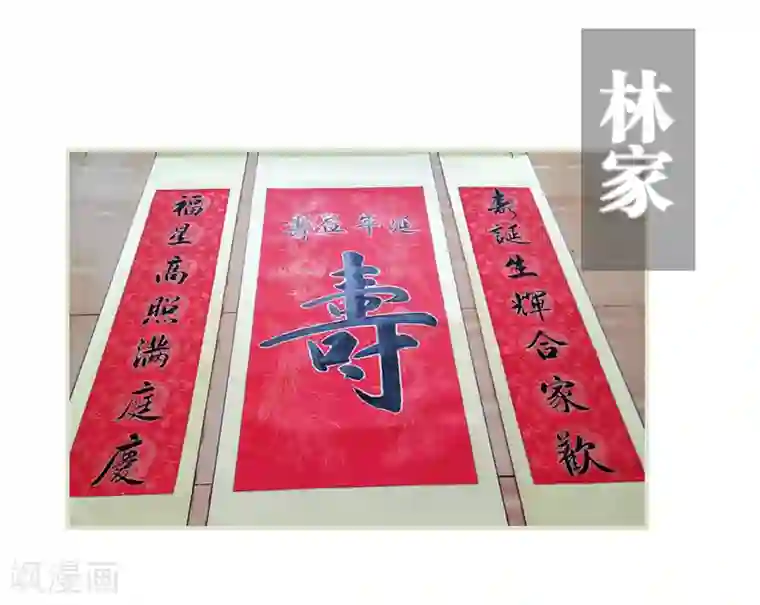 林家
壽誕生輝合家歡
延年益壽
壽
福星高照滿庭慶
飒漫画